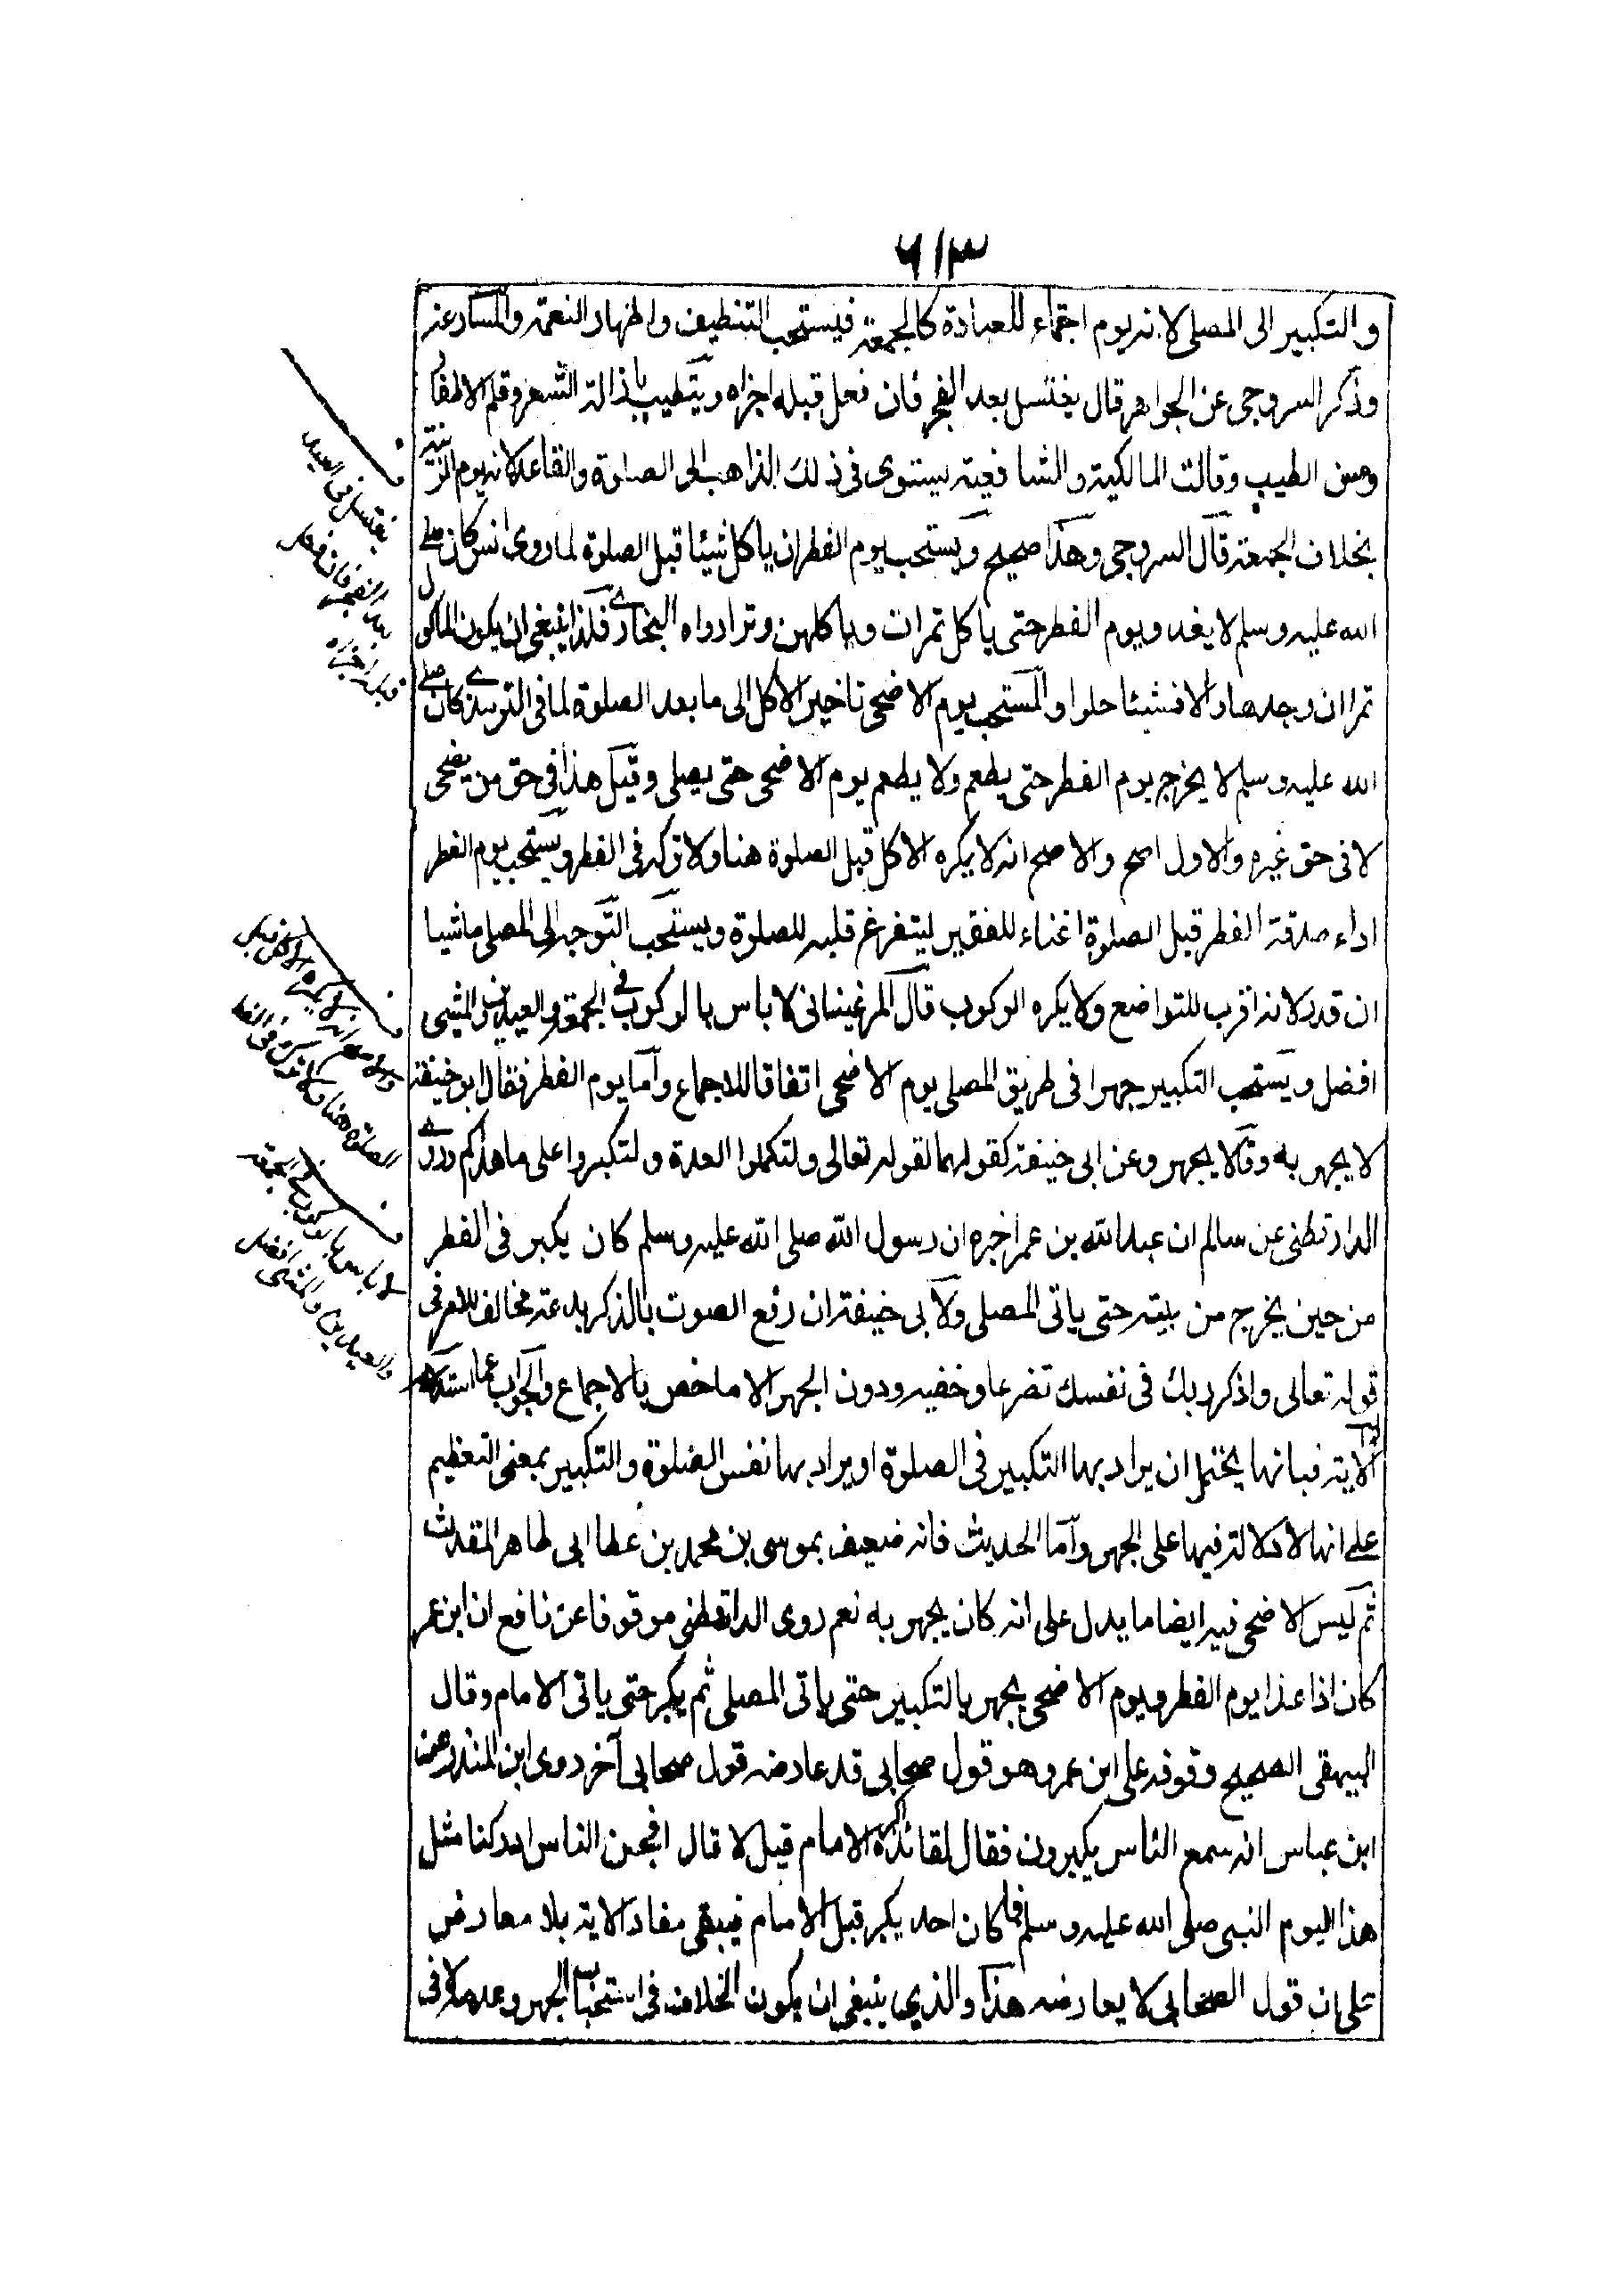 ٦١٣
والتكبير الى المصلى لانه يوم اجتماع للعبادة كالجمعة فيستحب التنظيف واظهار النعمة والمسارعة
وذكر السروجى عن الجواهر قال يغتسل بعد الفجر فان فعل قبله اجزاه ويتطيب بازالة الشعر وقلم الاظفار
ومس الطيب وقالت المالكية والشافعية يستوى فى ذلك الذاهب الى الصلوة والقاعد لانه يوم الزينة
بخلاف الجمعة قال السروجى وهذا صحيح ويستحب يوم الفطر ان ياكل شيئا قبل الصلوة لما روى انس كان صلى
الله عليه وسلم لا يغدو يوم الفطر حتى ياكل تمرات وياكلهن وترا رواه البخارى فلذا ينبغى ان يكون الماكول
تمرا ان وجدها والا فشيئا حلوا والمستحب يوم الاضحى تاخير الاكل الى ما بعد الصلوة لما فى الترمذى كان صلى
الله عليه وسلم لا يخرج يوم الفطر حتى يطعم ولا يطعم يوم الاضحى حتى يصلى وقيل هذا فى حق من يضحى
لا فى حق غيره والاول اصح والاصح انه لا يكره الاكل قبل الصلوة هنا ولا تركه فى الفطر ويستحب يوم الفطر
اداء صدقة الفطر قبل الصلوة اغناء للفقير ليتفرغ قلبه للصلوة ويستحب التوجه الى المصلى ماشيا
ان قدر لانه اقرب للتواضع ولا يكره الركوب قال المرغينانى لا باس بالركوب فى الجمعة والعيدين والمشى
افضل ويستحب التكبير جهرا فى طريق المصلى يوم الاضحى اتفاقا للاجماع وآما يوم الفطر فقال ابو حنيفة
لا يجهر به وقالا يجهر وعن ابى حنيفة كقولهما لقوله تعالى ولتكملوا العدة ولتكبروا على ما هدكم وروى
الدارقطنى عن سالم ان عبد الله بن عمر اخبره ان رسول الله صلى الله عليه وسلم كان يكبر فى الفطر
من حين يخرج من بيته حتى ياتى المصلى ولابى حنيفة ان رفع الصوت بالذكر بدعة مخالف للامر فى
قوله تعالى واذكر ربك فى نفسك تضرعا وخفيه ودون الجهر الا ما خص بالاجماع والجواب عما استدلا به
الاية فبانها يحتمل ان يراد بها التكبير فى الصلوة او يراد بها نفس الصلوة والتكبير بمعنى التعظيم
على انها لا دلالة فيها على الجهر وآما الحديث فانه ضعيف بموسى بن محمد بن عطا ابى طاهر المقدسى
ثم ليس الاضحى فيه ايضا ما يدل على انه كان يجهر به نعم روى الدارقطنى موقوفا عن نافع ان ابن عمر
كان اذا غدا يوم الفطر ويوم الاضحى يجهر بالتكبير حتى ياتى المصلى ثم يكبر حتى ياتى الامام وقال
البيهقى الصحيح وقوفه على ابن عمر وهو قول صحابى قد عارضه قول صحابى آخر روى ابن المنذر عن
ابن عباس انه سمع الناس يكبرون فقال لقائده اكبر الامام قيل لا قال افجن الناس ادركنا مثل
هذا اليوم النبى صلى الله عليه وسلم فما كان احد يكبر قبل الامام فيبقى مفاد الاية بلا معارض
على ان قول الصحابى لا يعارضه هذا والذى ينبغى ان يكون الخلاف فى استحباب الجهر وعدمه لا فى
يغتسل فى العيد
بعد الفجر فان فعل
قبله اجزاه
والاصح انه لا يكره الاكل قبل
الصلوة هنا ولا تركه فى الفطر
لا باس بالركوب فى الجمعة
والعيدين والمشى افضل